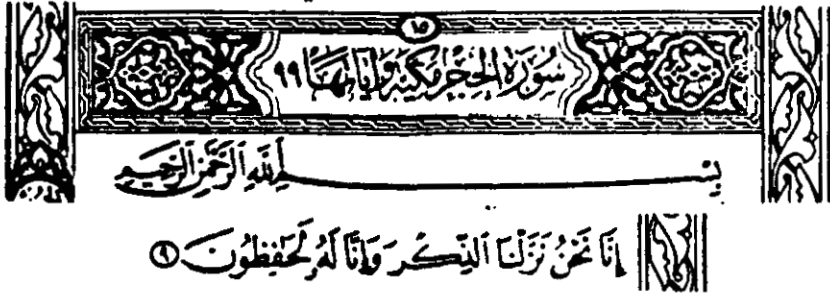 ١٥
سُورَةُ الحِجْرِ مَكِّيَّة وَآيَاتُهَا ٩٩
بِسْمِ ٱللَّهِ ٱلرَّحْمَٰنِ ٱلرَّحِيمِ
إِنَّا نَحْنُ نَزَّلْنَا ٱلذِّكْرَ وَإِنَّا لَهُۥ لَحَٰفِظُونَ ٩